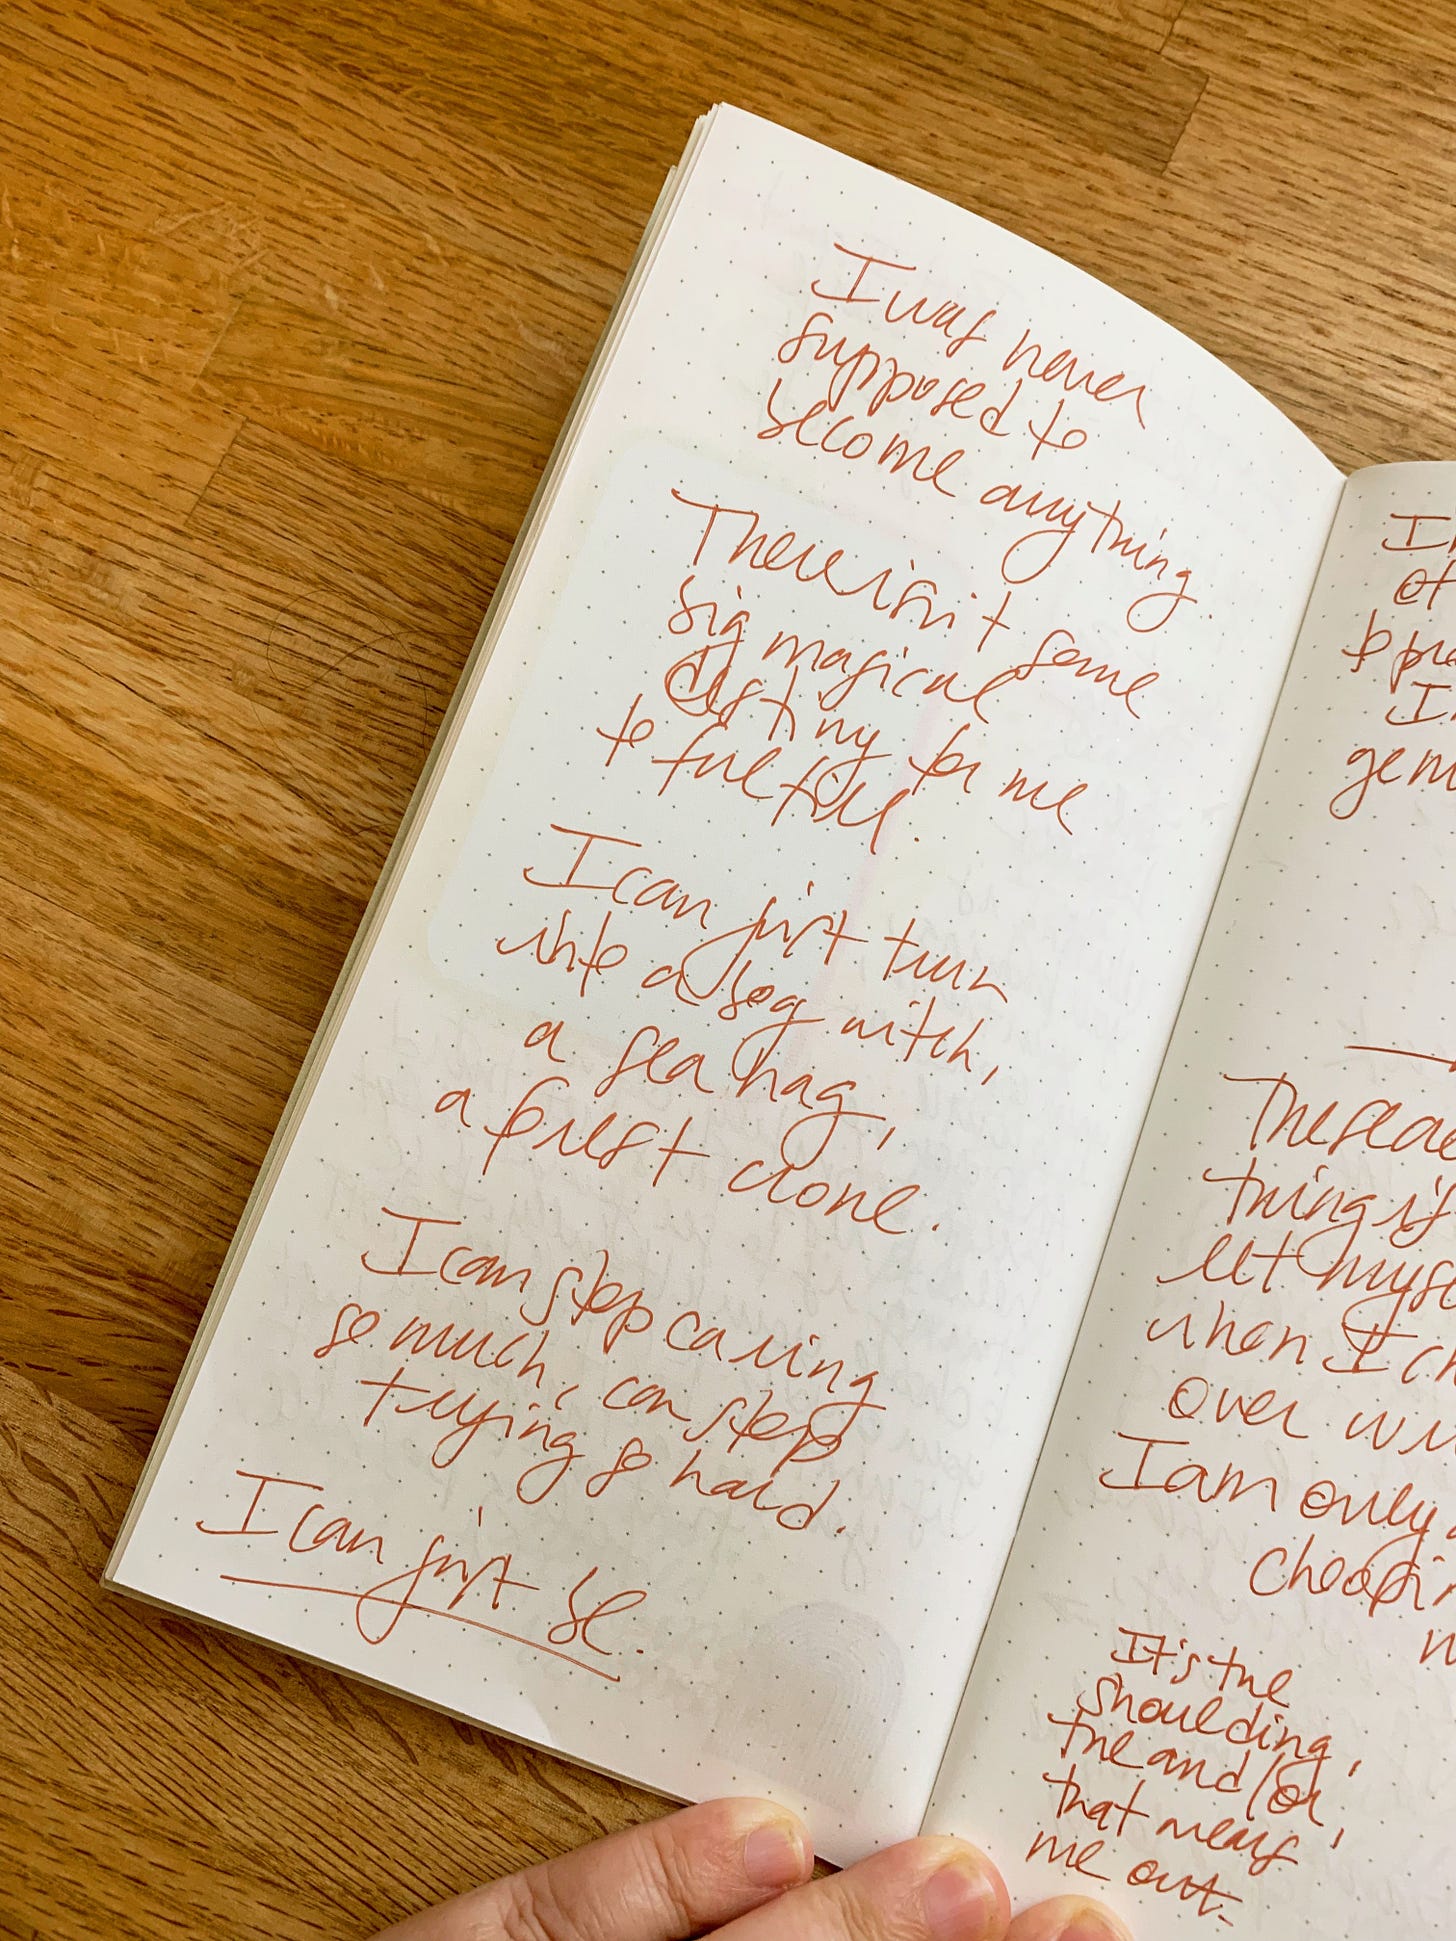 I was never
supposed to
become anything
There isn't some
big magical
destiny for me
to fulfill.
I can just turn
into a bog witch,
a sea hag,
a forest crone.
I can stop caring
so much, can stop
trying so hard.
I can just be.
I
of
to pre
I
gen
The sea
thing is
let mys
when I ch
over wi
I am only
cheapin
It's the
shoulding,
the and/or,
that wears
me out.